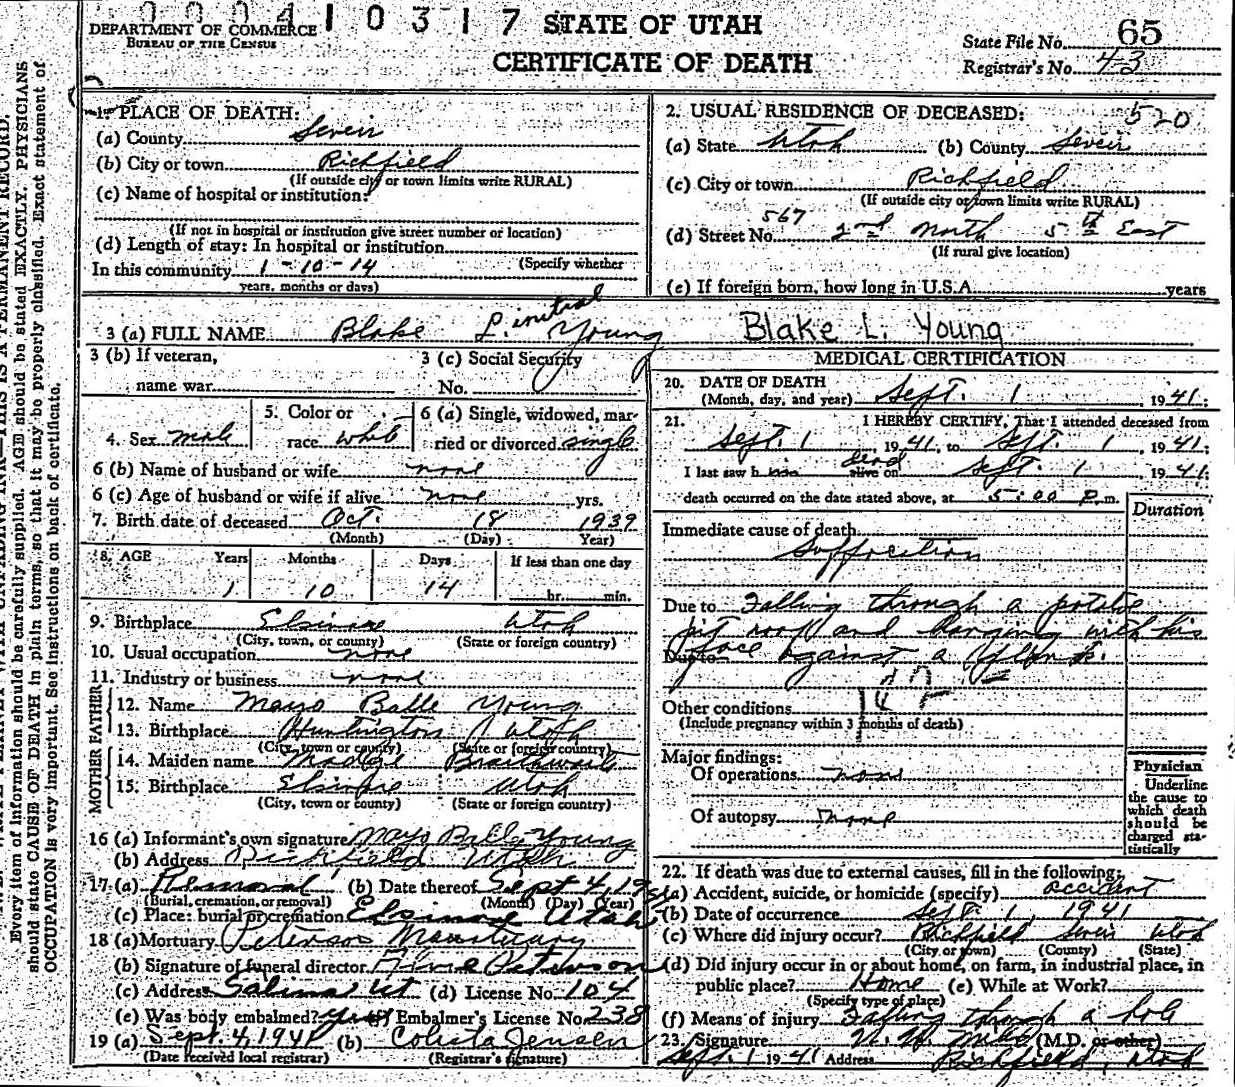 00041 0 3 1 7
STATE OF UTAH
DEPARTMENT OF COMMERCE
BUREAU OF THE CENSUS
CERTIFICATE OF DEATH
State File No. 65
Registrar's No. 43
1. PLACE OF DEATH:
(a) County Sevier
(b) City or town Richfield
(If outside city or town limits write RURAL)
(c) Name of hospital or institution:
(If not in hospital or institution give street number or location)
(d) Length of stay: In hospital or institution
(Specify whether
In this community 1-10-14
years, months or days)
2. USUAL RESIDENCE OF DECEASED: 520
(a) State Utah (b) County Sevier
(c) City or town Richfield
(If outside city or town limits write RURAL)
567
(d) Street No. 2nd North 5th East
(If rural give location)
(e) If foreign born, how long in U.S.A. years
3 (a) FULL NAME Blake L. initial Young Blake L. Young
3 (b) If veteran,
name war
3 (c) Social Security
No.
4. Sex male
5. Color or
race white
6 (a) Single, widowed, mar-
ried or divorced single
6 (b) Name of husband or wife none
6 (c) Age of husband or wife if alive none yrs.
7. Birth date of deceased Oct. 18 1939
(Month) (Day) Year)
8. AGE Years Months Days If less than one day
1 10 14 hr. min.
9. Birthplace Elsinore Utah
(City, town, or county) (State or foreign country)
10. Usual occupation none
11. Industry or business none
FATHER
12. Name Mayo Balle Young
13. Birthplace Huntington Utah
(City, town or county) (State or foreign country)
MOTHER
14. Maiden name Madge Braithwaite
15. Birthplace Elsinore Utah
(City, town or county) (State or foreign country)
16 (a) Informant's own signature Mayo Balle Young
(b) Address Richfield Utah
17. (a) Removal (b) Date thereof Sept 4, 19
(Burial, cremation, or removal) (Month) (Day) (Year)
(c) Place: burial or cremation Elsinore Utah
18 (a) Mortuary Peterson Mortuary
(b) Signature of funeral director Peterson
(c) Address Salina Ut (d) License No. 104
(e) Was body embalmed? yes (f) Embalmer's License No. 238
19 (a) Sept. 4, 1941 (b) Jensen
(Date received local registrar) (Registrar's signature)
MEDICAL CERTIFICATION
20. DATE OF DEATH
(Month, day, and year) Sept. 1, 1941;
21. I HEREBY CERTIFY, That I attended deceased from
Sept. 1, 1941, to Sept. 1, 1941;
I last saw him dead alive on Sept. 1 1941;
death occurred on the date stated above, at 5:00 P.m.
Duration
Immediate cause of death
Suffocation
Due to Falling through a potatoe
pit roof and hanging with his
Due to face against a plank.
Other conditions
(Include pregnancy within 3 months of death)
Major findings:
Of operations none
Of autopsy none
Physician
Underline
the cause to
which death
should be
charged sta-
tistically
22. If death was due to external causes, fill in the following:
(a) Accident, suicide, or homicide (specify) accident
(b) Date of occurrence Sept. 1, 1941
(c) Where did injury occur? Richfield Sevier Utah
(City or town) (County) (State)
(d) Did injury occur in or about home, on farm, in industrial place, in
public place? Home (e) While at Work?
(Specify type of place)
(f) Means of injury Falling through a hole
23. Signature (M.D. or other)
Sept. 1 1941 Address Richfield, Utah
Every item of information should be carefully supplied. AGE should be stated EXACTLY. PHYSICIANS
should state CAUSE OF DEATH in plain terms, so that it may be properly classified. Exact statement of
OCCUPATION is very important. See instructions on back of certificate.